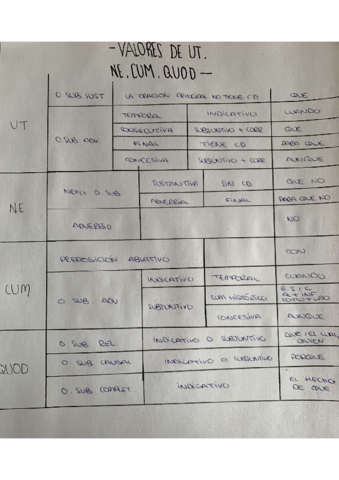 - VALORES DE UT.
NE. CUM. QUOD -
UT
O SUB SUST LA ORACIÓN PRINCIPAL NO TIENE CD QUE
O SUB ADV
TEMPORAL INDICATIVO CUANDO
CONSECUTIVA SUBJUNTIVO + CORR QUE
FINAL TIENE CD PARA QUE
CONCESIVA SUBJUNTIVO + CORR AUNQUE
NE
NEXO O. SUB
SUSTANTIVA SIN CD QUE NO
ADVERBIAL FINAL PARA QUE NO
ADVERBIO NO
CUM
PREPOSICIÓN ABLATIVO CON
O SUB ADV
INDICATIVO TEMPORAL CUANDO
SUBJUNTIVO
CUM HISTÓRICO
AL + INF
CONCESIVA AUNQUE
QUOD
O SUB REL INDICATIVO O SUBJUNTIVO QUE / EL CUAL,
QUIEN
O. SUB CAUSAL INDICATIVO O SUBJUNTIVO PORQUE
O. SUB COMPLET. INDICATIVO EL HECHO
DE QUE